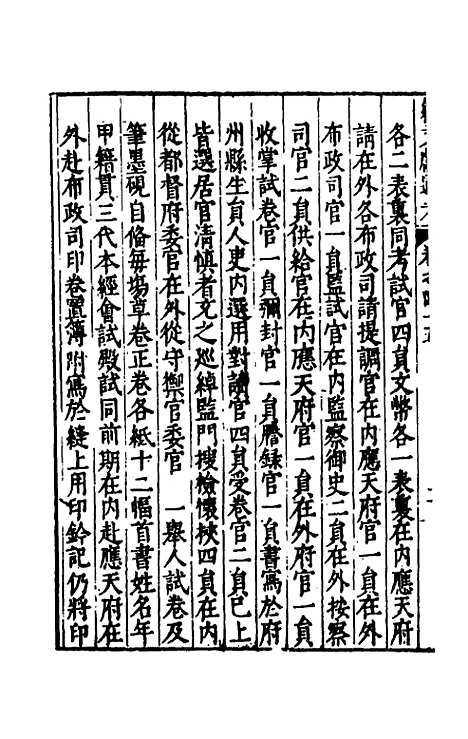 各二表裏同考試官四員文幣各一表裏在內應天府
請在外各布政司請提調官在內應天府官一員在外
布政司官一員監試官在內監察御史二員在外按察
司官二員供給官在內應天府官一員在外府官一員
收掌試卷官一員彌封官一員謄錄官一員書寫於府
州縣生員人吏內選用對讀官四員受卷官二員已上
皆選居官清慎者充之巡綽監門搜檢懷挾四員在內
從都督府委官在外從守禦官委官　一舉人試卷及
筆墨硯自備每場草卷正卷各紙十二幅首書姓名年
甲籍貫三代本經會試殿試同前期在內赴應天府在
外赴布政司印卷置簿附寫於縫上用印鈐記仍將印